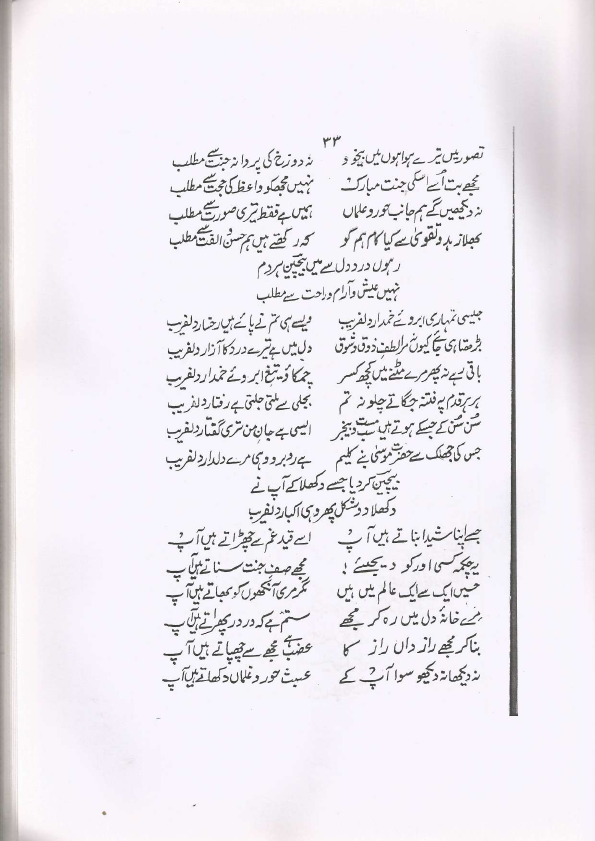 ۳۳
تصور میں تیرے ہوا ہوں میں بیخود نہ دوزخ کی پروا نہ جنت سے مطلب
مجھے بت اُسے اسکی جنت مبارک نہیں مجھکو واعظ کی حجت سے مطلب
نہ دیکھیں گے ہم جانب حور و غلماں ہمیں ہے فقط تیری صورت سے مطلب
بھلا زہد و تقویٰ سے کیا کام ہم کو کہ رکھتے ہیں ہم حسن و الفت سے مطلب
رہوں درد دل سے میں بیچین ہر دم
نہیں عیش و آرام و راحت سے مطلب
جیسی تمہاری ابروئے خمدار دلفریب ویسے ہی تم نے پائے ہیں رخسار دلفریب
بڑھتا ہی جائیگا کیوں مرا لطف ذوق و شوق دل میں ہے تیرے درد کا آزار دلفریب
باقی رہے نہ پھر مرے مٹنے میں کچھ کسر چمکاؤ تیغ ابروئے خمدار دلفریب
ہر ہر قدم پہ فتنہ جگاتے چلو نہ تم بجلی سے ملتی جلتی ہے رفتار دلفریب
سُن سُن کے جسکے ہوتے ہیں مست و بیخبر ایسی ہے جان من تری گفتار دلفریب
جس کی جھلک سے حضرت موسیٰ بنے کلیم ہے روبرو وہی مرے دلدار دلفریب
بیچین کر دیا جسے دکھلا کے آپ نے
دکھلا دو شکل پھر وہی اکبار دلفریب
جسے اپنا شیدا بناتے ہیں آپ اسے قید غم سے چھڑاتے ہیں آپ
یہ چکہ کسی اور کو دیجئے ! مجھے صفِ جنت سناتے ہیں آپ
حسیں ایک سے ایک عالم میں ہیں مگر مری آنکھوں کو بھاتے ہیں آپ
مرے خانۂ دل میں رہ کر مجھے ستم ہے کہ در در پھراتے ہیں آپ
بنا کر مجھے راز داں راز کا غضب ہے مجھے سے چھپاتے ہیں آپ
نہ دیکھا نہ دیکھو سوا آپ کے عبث حور و غلماں دکھاتے ہیں آپ